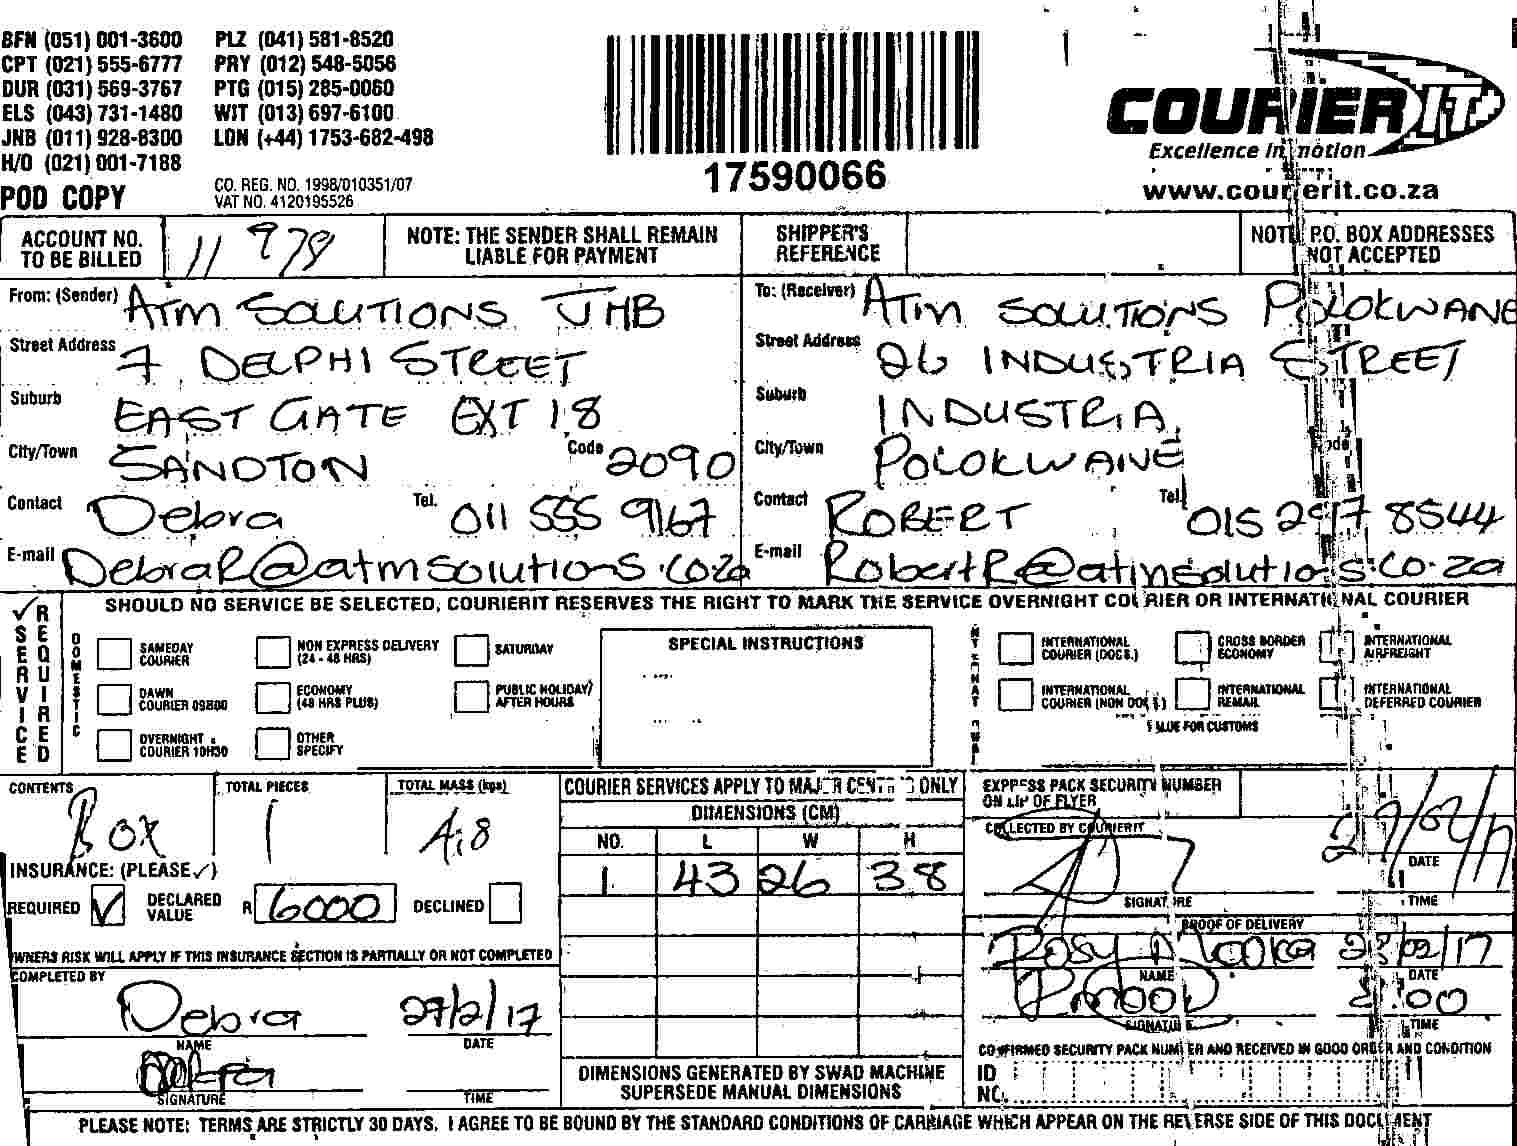 BFN (051) 001-3600 PLZ (041) 581-8520
CPT (021) 555-6777 PRY (012) 548-5056
DUR (031) 569-3767 PTG (015) 285-0060
ELS (043) 731-1480 WIT (013) 697-6100
JNB (011) 928-8300 LON (+44) 1753-682-498
H/O (021) 001-7188
POD COPY
CO. REG. NO. 1998/010351/07
VAT NO. 4120195526
17590066
COURIER IT
Excellence in motion
www.courierit.co.za
ACCOUNT NO. TO BE BILLED 11978
NOTE: THE SENDER SHALL REMAIN LIABLE FOR PAYMENT
SHIPPER'S REFERENCE
NOTE P.O. BOX ADDRESSES NOT ACCEPTED
From: (Sender) ATM SOLUTIONS JHB
Street Address 7 DELPHI STREET
Suburb EAST GATE EXT 18
City/Town SANDTON Code 2090
Contact Debra Tel. 011 555 9167
E-mail DebraR@atmsolutions.co.za
To: (Receiver) ATM SOLUTIONS POLOKWANE
Street Address 26 INDUSTRIA STREET
Suburb INDUSTRIA
City/Town POLOKWANE Code
Contact ROBERT Tel. 015 297 8544
E-mail RobertR@atmsolutions.co.za
SERVICE REQUIRED
SHOULD NO SERVICE BE SELECTED, COURIERIT RESERVES THE RIGHT TO MARK THE SERVICE OVERNIGHT COURIER OR INTERNATIONAL COURIER
DOMESTIC
SAMEDAY COURIER
NON EXPRESS DELIVERY (24 - 48 HRS)
SATURDAY
DAWN COURIER 09H00
ECONOMY (48 HRS PLUS)
PUBLIC HOLIDAY/ AFTER HOURS
OVERNIGHT COURIER 10H30
OTHER SPECIFY
SPECIAL INSTRUCTIONS
INTERNATIONAL COURIER (DOCS.)
CROSS BORDER ECONOMY
INTERNATIONAL AIRFREIGHT
INTERNATIONAL COURIER (NON DOCS.)
INTERNATIONAL REMAIL
INTERNATIONAL DEFERRED COURIER
VALUE FOR CUSTOMS
CONTENTS Box
TOTAL PIECES 1
TOTAL MASS (kgs) 4.8
INSURANCE: (PLEASE ✓)
REQUIRED ✓ DECLARED VALUE R 6000 DECLINED
OWNERS RISK WILL APPLY IF THIS INSURANCE SECTION IS PARTIALLY OR NOT COMPLETED
COMPLETED BY
Debra 27/2/17
NAME DATE
SIGNATURE TIME
COURIER SERVICES APPLY TO MAJOR CENTRES ONLY
DIMENSIONS (CM)
NO. L W H
1 43 26 38
DIMENSIONS GENERATED BY SWAD MACHINE
SUPERSEDE MANUAL DIMENSIONS
EXPRESS PACK SECURITY NUMBER
ON LIP OF FLYER
COLLECTED BY COURIERIT
27/02/17
DATE
SIGNATURE TIME
PROOF OF DELIVERY
Rosy 28/02/17
NAME DATE
SIGNATURE TIME
CONFIRMED SECURITY PACK NUMBER AND RECEIVED IN GOOD ORDER AND CONDITION
ID NO.
PLEASE NOTE: TERMS ARE STRICTLY 30 DAYS. I AGREE TO BE BOUND BY THE STANDARD CONDITIONS OF CARRIAGE WHICH APPEAR ON THE REVERSE SIDE OF THIS DOCUMENT